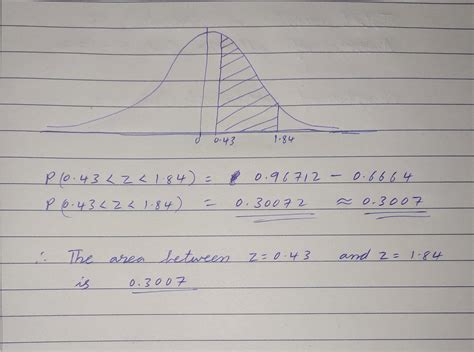 0 0.43 1.84
P(0.43 < Z < 1.84) = 0.96712 - 0.6664
P(0.43 < Z < 1.84) = 0.30072 ≈ 0.3007
∴ The area between Z = 0.43 and Z = 1.84
is 0.3007